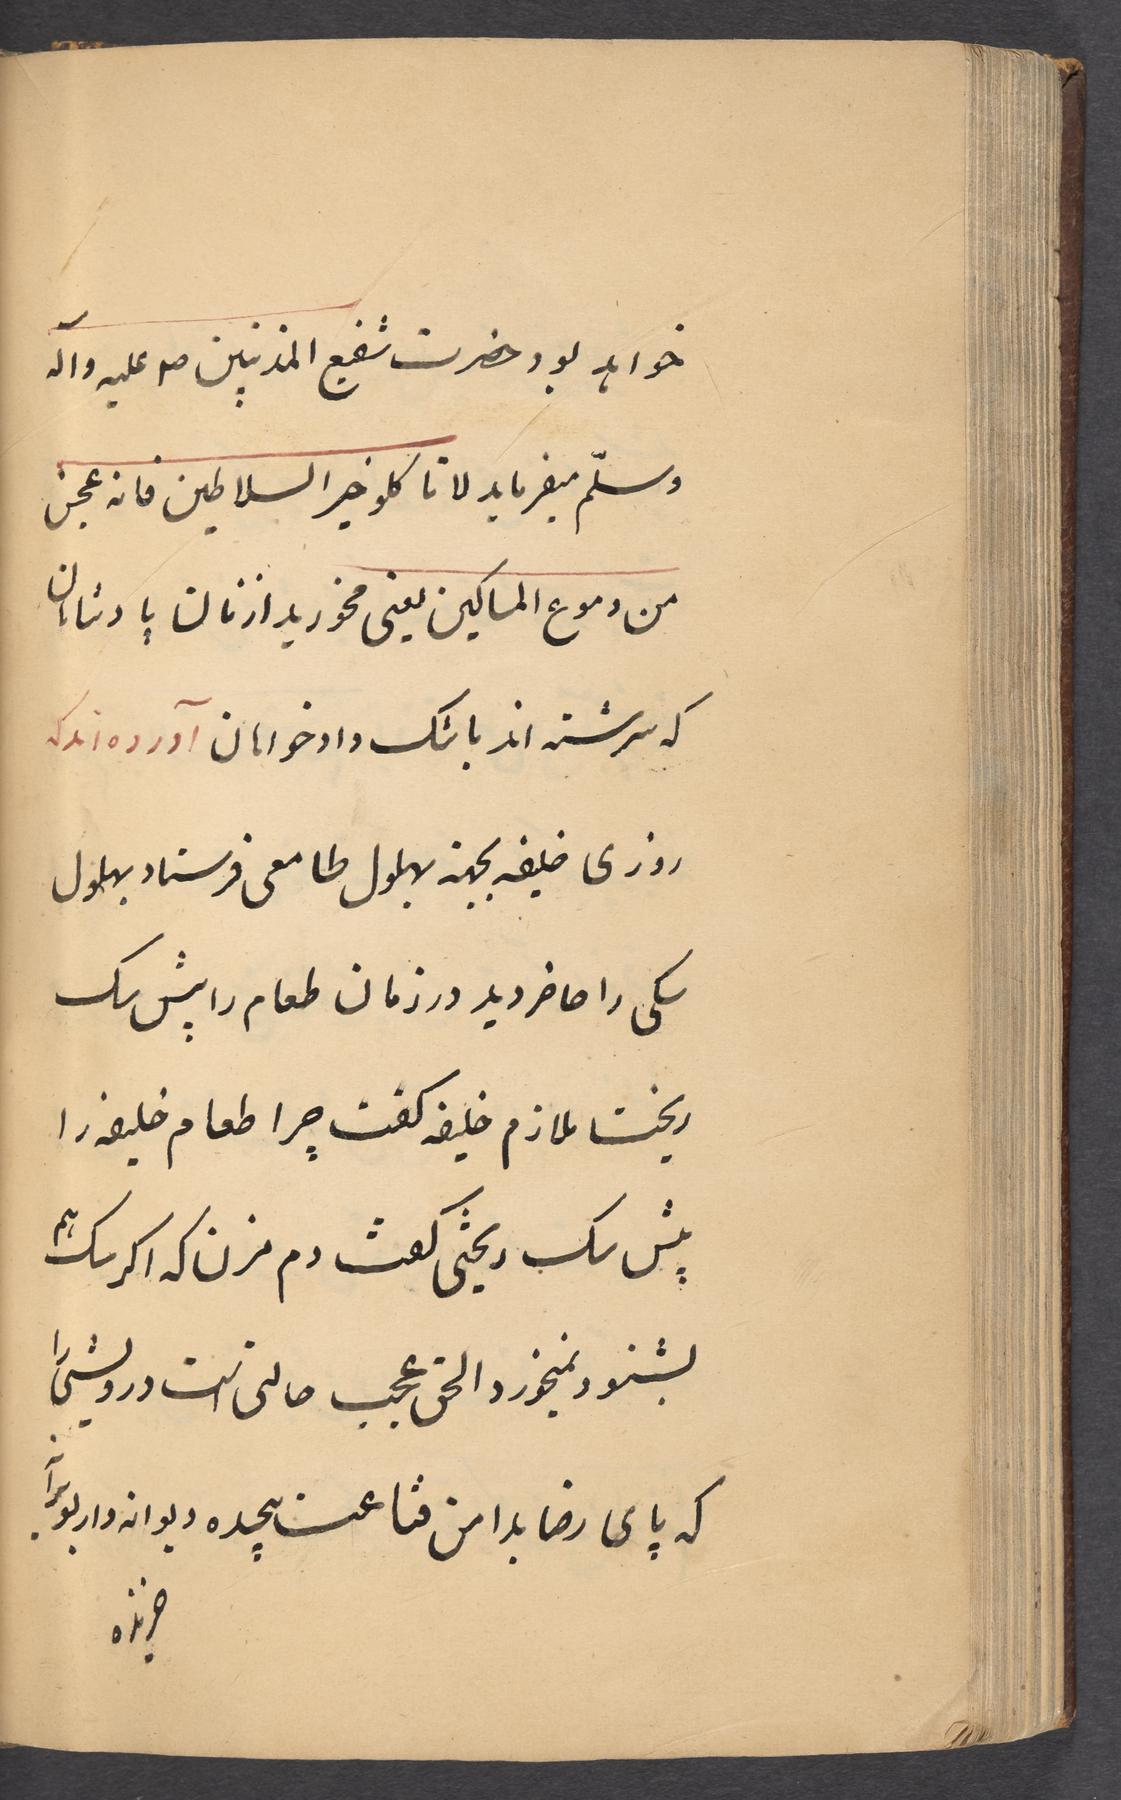 خواهد بود حضرت شفیع المذنبین صم علیه وآله
وسلّم میفرماید لا تاکلو خبر السلاطین فانه عجن
من دموع المساکین یعنی مخورید از نان پادشاهان
که سرشته اند باشک دادخواهان آورده اند که
روزی خلیفه بجهة بهلول طامعی فرستاد بهلول
سکی را حاضر دید در زمان طعام را پیش سک
ریخت ملازم خلیفه کفت چرا طعام خلیفه را
پیش سک ریختی کفت دم مزن که اکر سک هم
بشنود نمیخورد الحق عجیب حالتی است درویشی را
که پای رضا بدامن قناعت پیچیده دیوانه وار بویرانه
خزنده